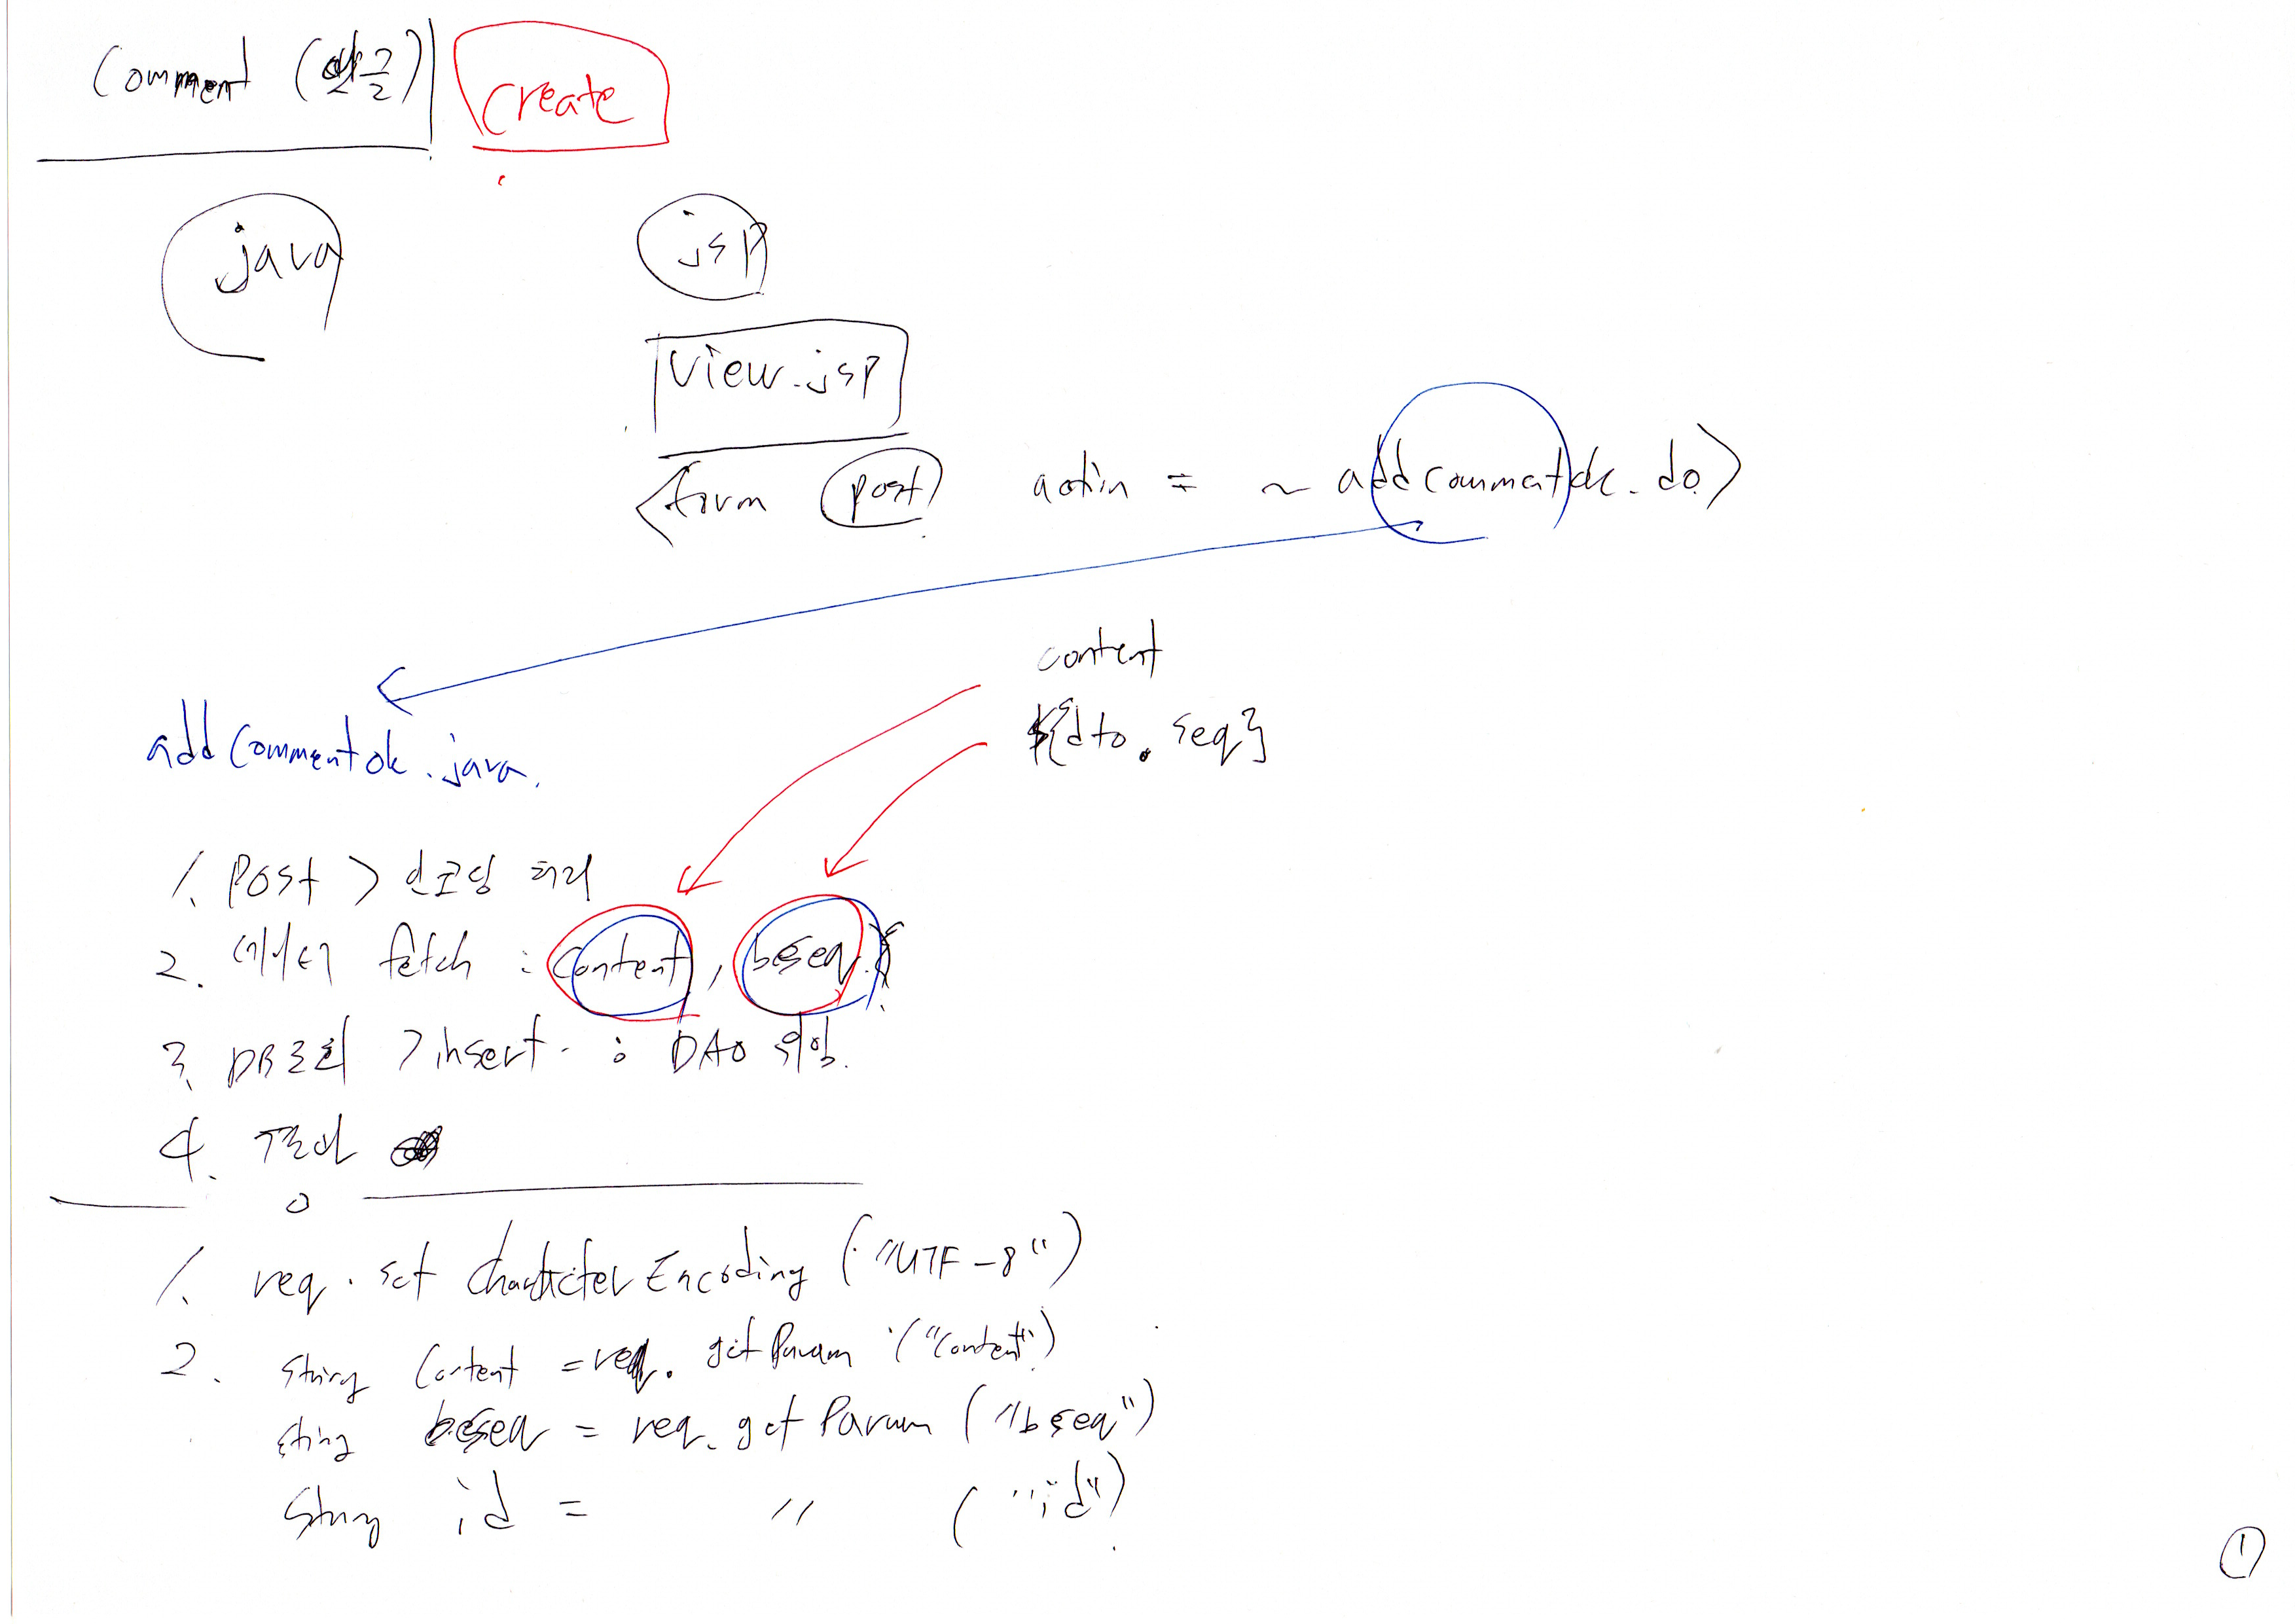 Comment (댓글)
create
java
jsp
view.jsp
<form post action = ~ addcommentok.do>
content
${dto.seq}
addCommentok.java.
1. POST > 인코딩 처리
2. 데이터 fetch : content, bseq
3. DB 조회 > insert. : DAO 위임.
4. 결과
1. req. set Character Encoding ("UTF-8")
2. string Content = req. get Param ("Content")
string bseq = req. get Param ("bseq")
string id = " ("id")
1